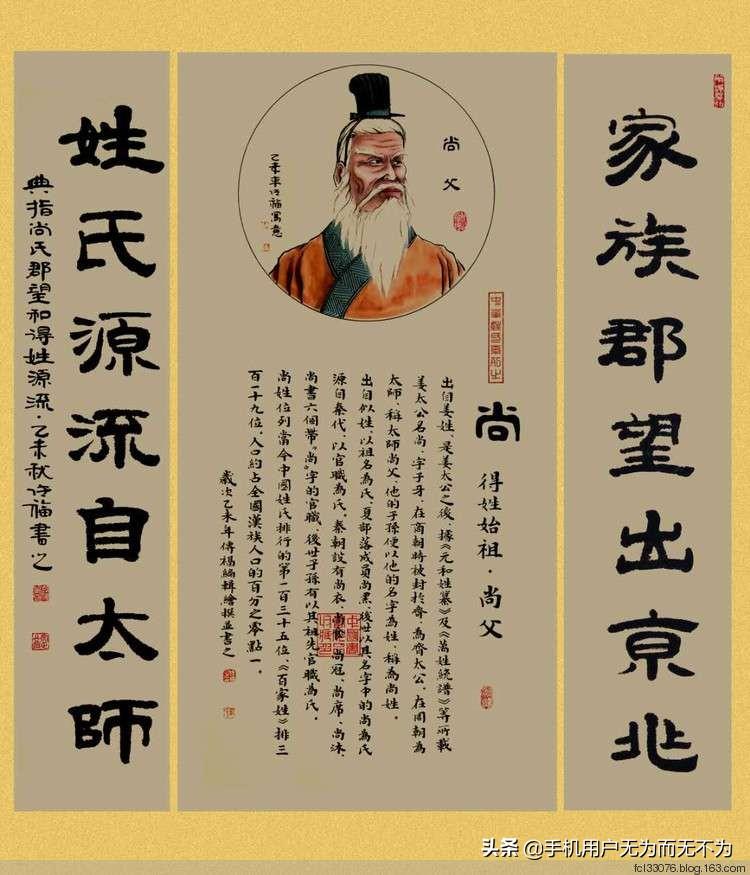 家族郡望出京兆
尚父
乙未年许福写意
尚 得姓始祖·尚父
出自姜姓、是姜太公之後、據《元和姓纂》及《萬姓統譜》等所載
姜太公名尚、字子牙、在商朝時被封於齊、為齊太公、在周朝為
太師、稱太師尚父、他的子孫便以他的名字為姓、稱為尚姓。
出自似姓、以祖名為氏、夏部落成員尚黑、後世以其名字中的尚為氏
源自秦代、以官職為氏、秦朝設有尚衣、尚冠、尚席、尚沐、
尚書六個帶“尚”字的官職、後世子孫有以其祖先官職為氏。
尚姓位列當今中國姓氏排行的第一百三十五位、《百家姓》排三
百一十九位、人口約占全國漢族人口的百分之零點一。
歲次乙未年傳楊編輯繪撰並書之
姓氏源流自太師
典指尚氏郡望和得姓源流·乙未秋许福書之
头条 @手机用户无为而无不为
fcl33076.blog.163.com